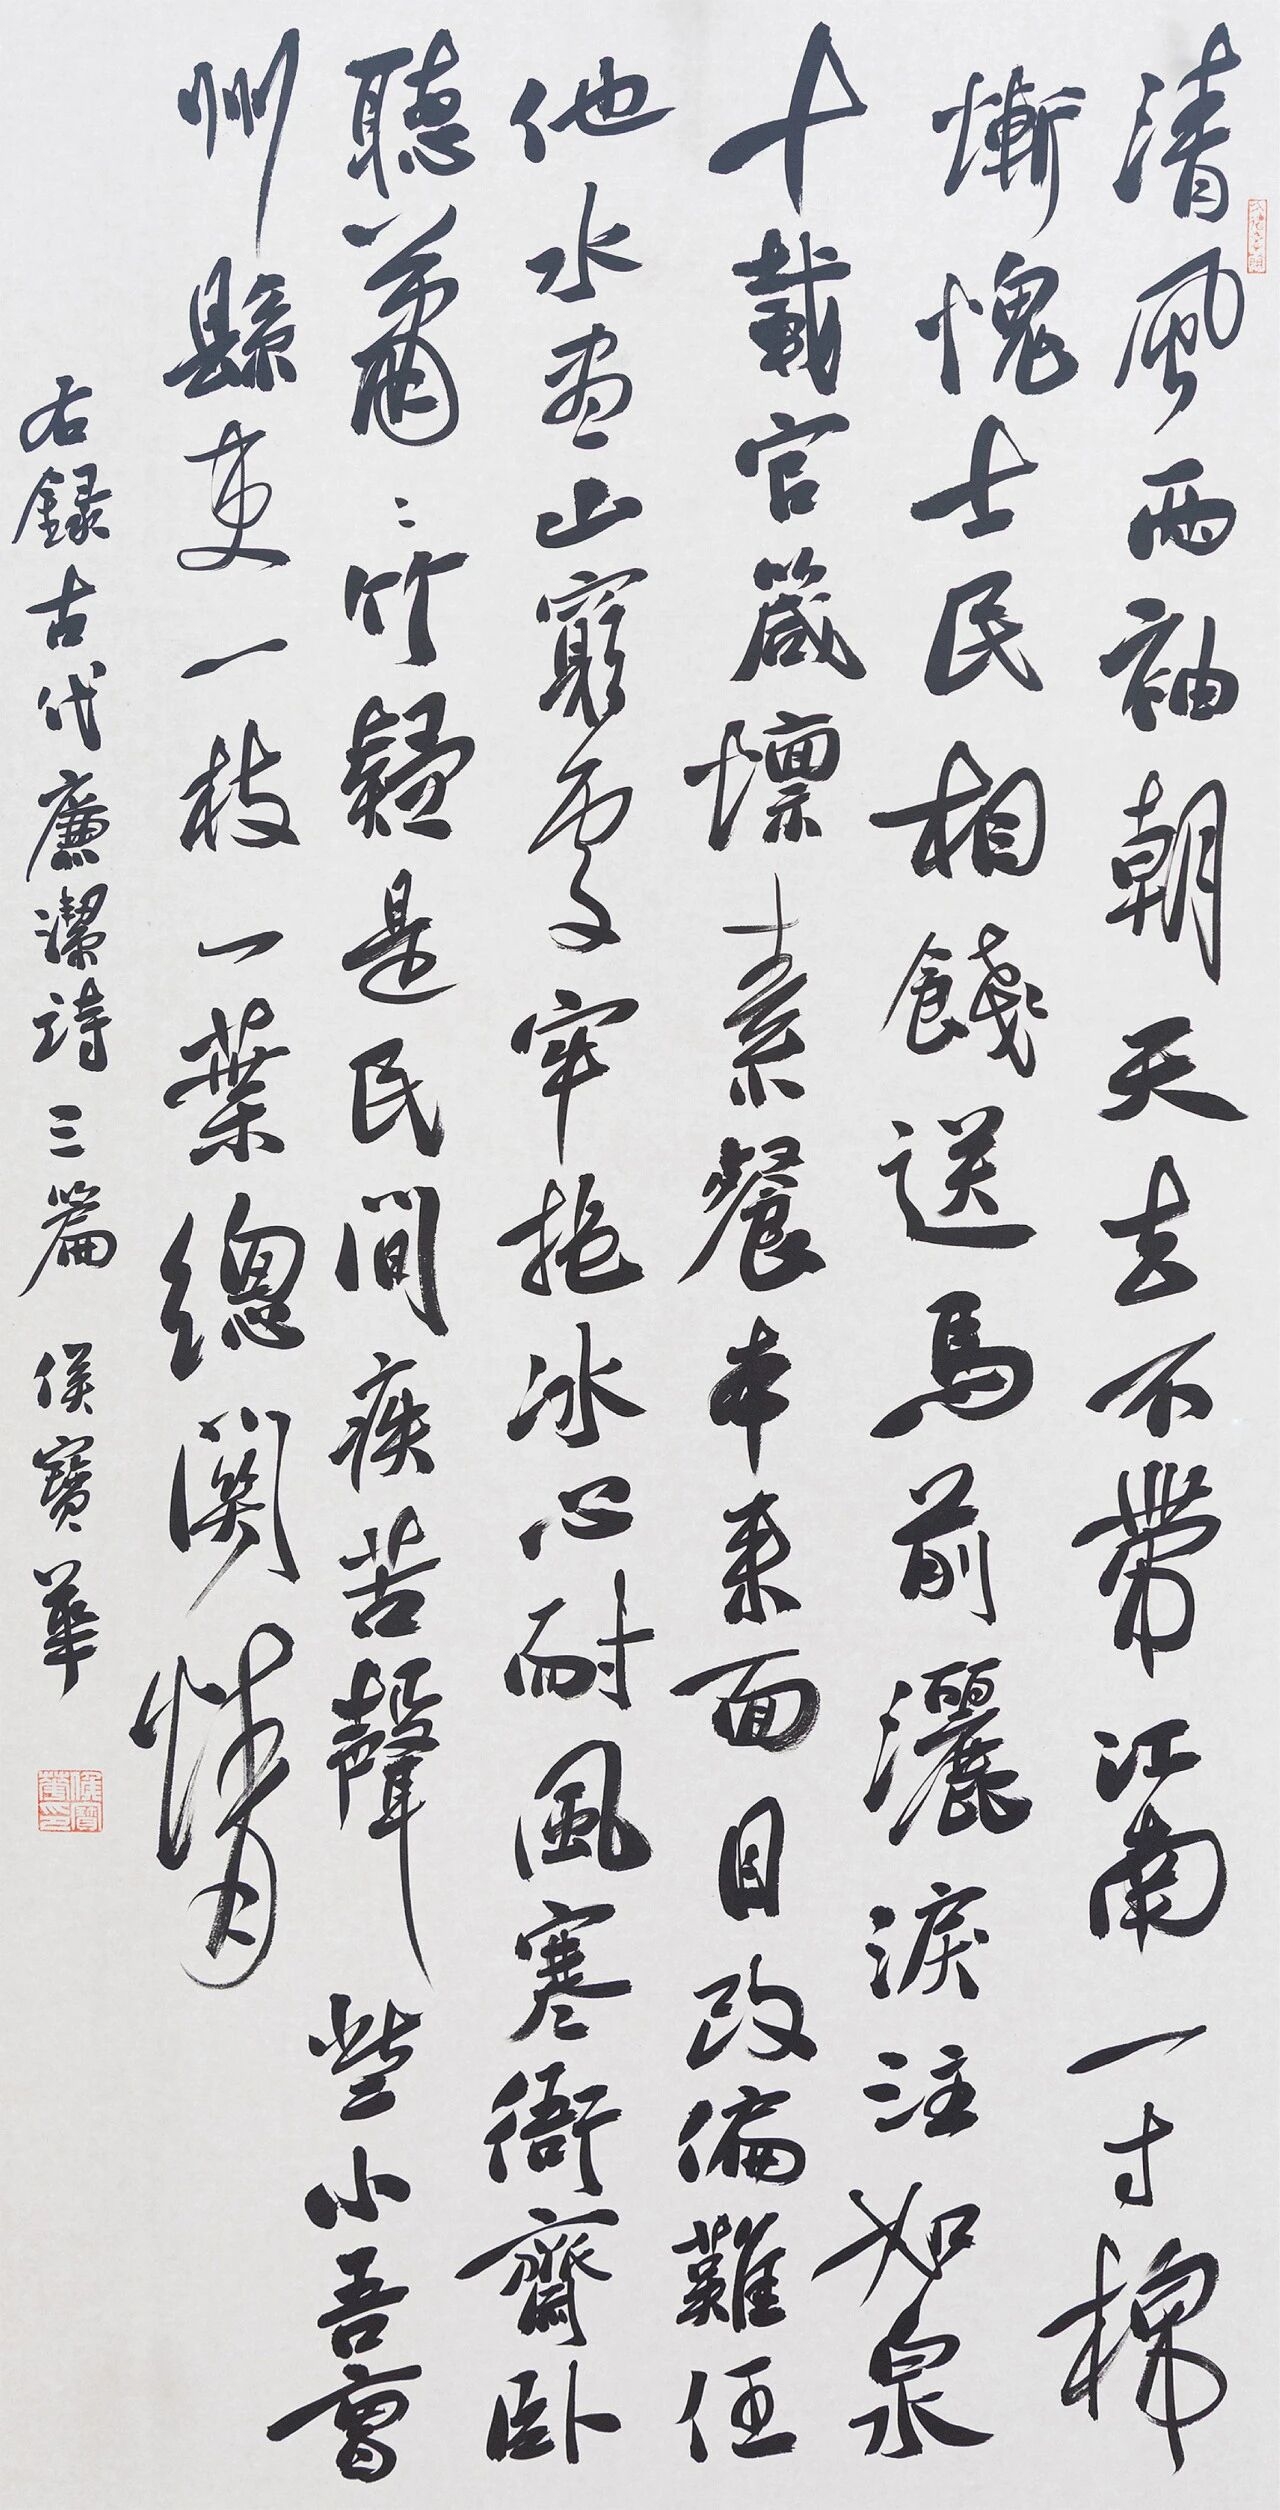 清風兩袖朝天去不帶江南一寸棉
慚愧士民相餞送馬前灑淚注如泉
十載官箴懍素餐本來面目改偏難任
他水盡山窮處牢抱冰心耐風寒衙齋卧
聽蕭〻竹疑是民間疾苦聲些小吾曹
州縣吏一枝一葉總關情
右錄古代廉潔詩三篇 侯寶華
侯寶華印